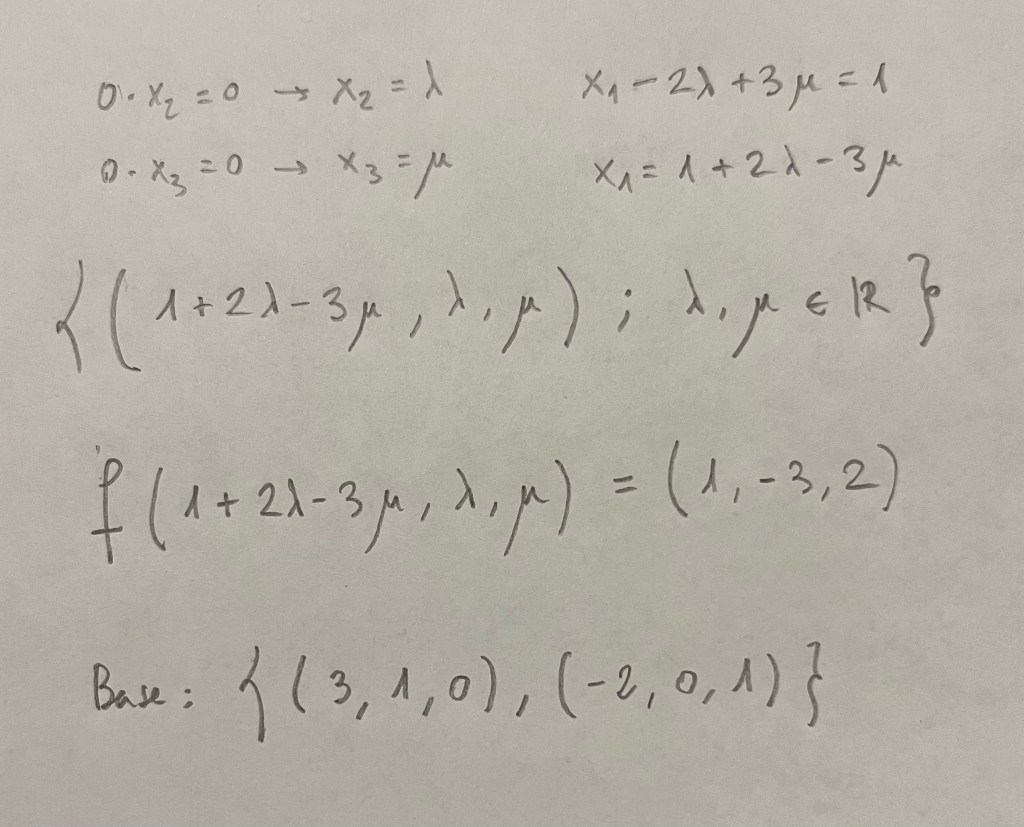 0·x₂ = 0 → x₂ = λ x₁ − 2λ + 3μ = 1
0·x₃ = 0 → x₃ = μ x₁ = 1 + 2λ − 3μ
{(1 + 2λ − 3μ, λ, μ); λ, μ ∈ ℝ}
f(1 + 2λ − 3μ, λ, μ) = (1, −3, 2)
Base: {(3, 1, 0), (−2, 0, 1)}